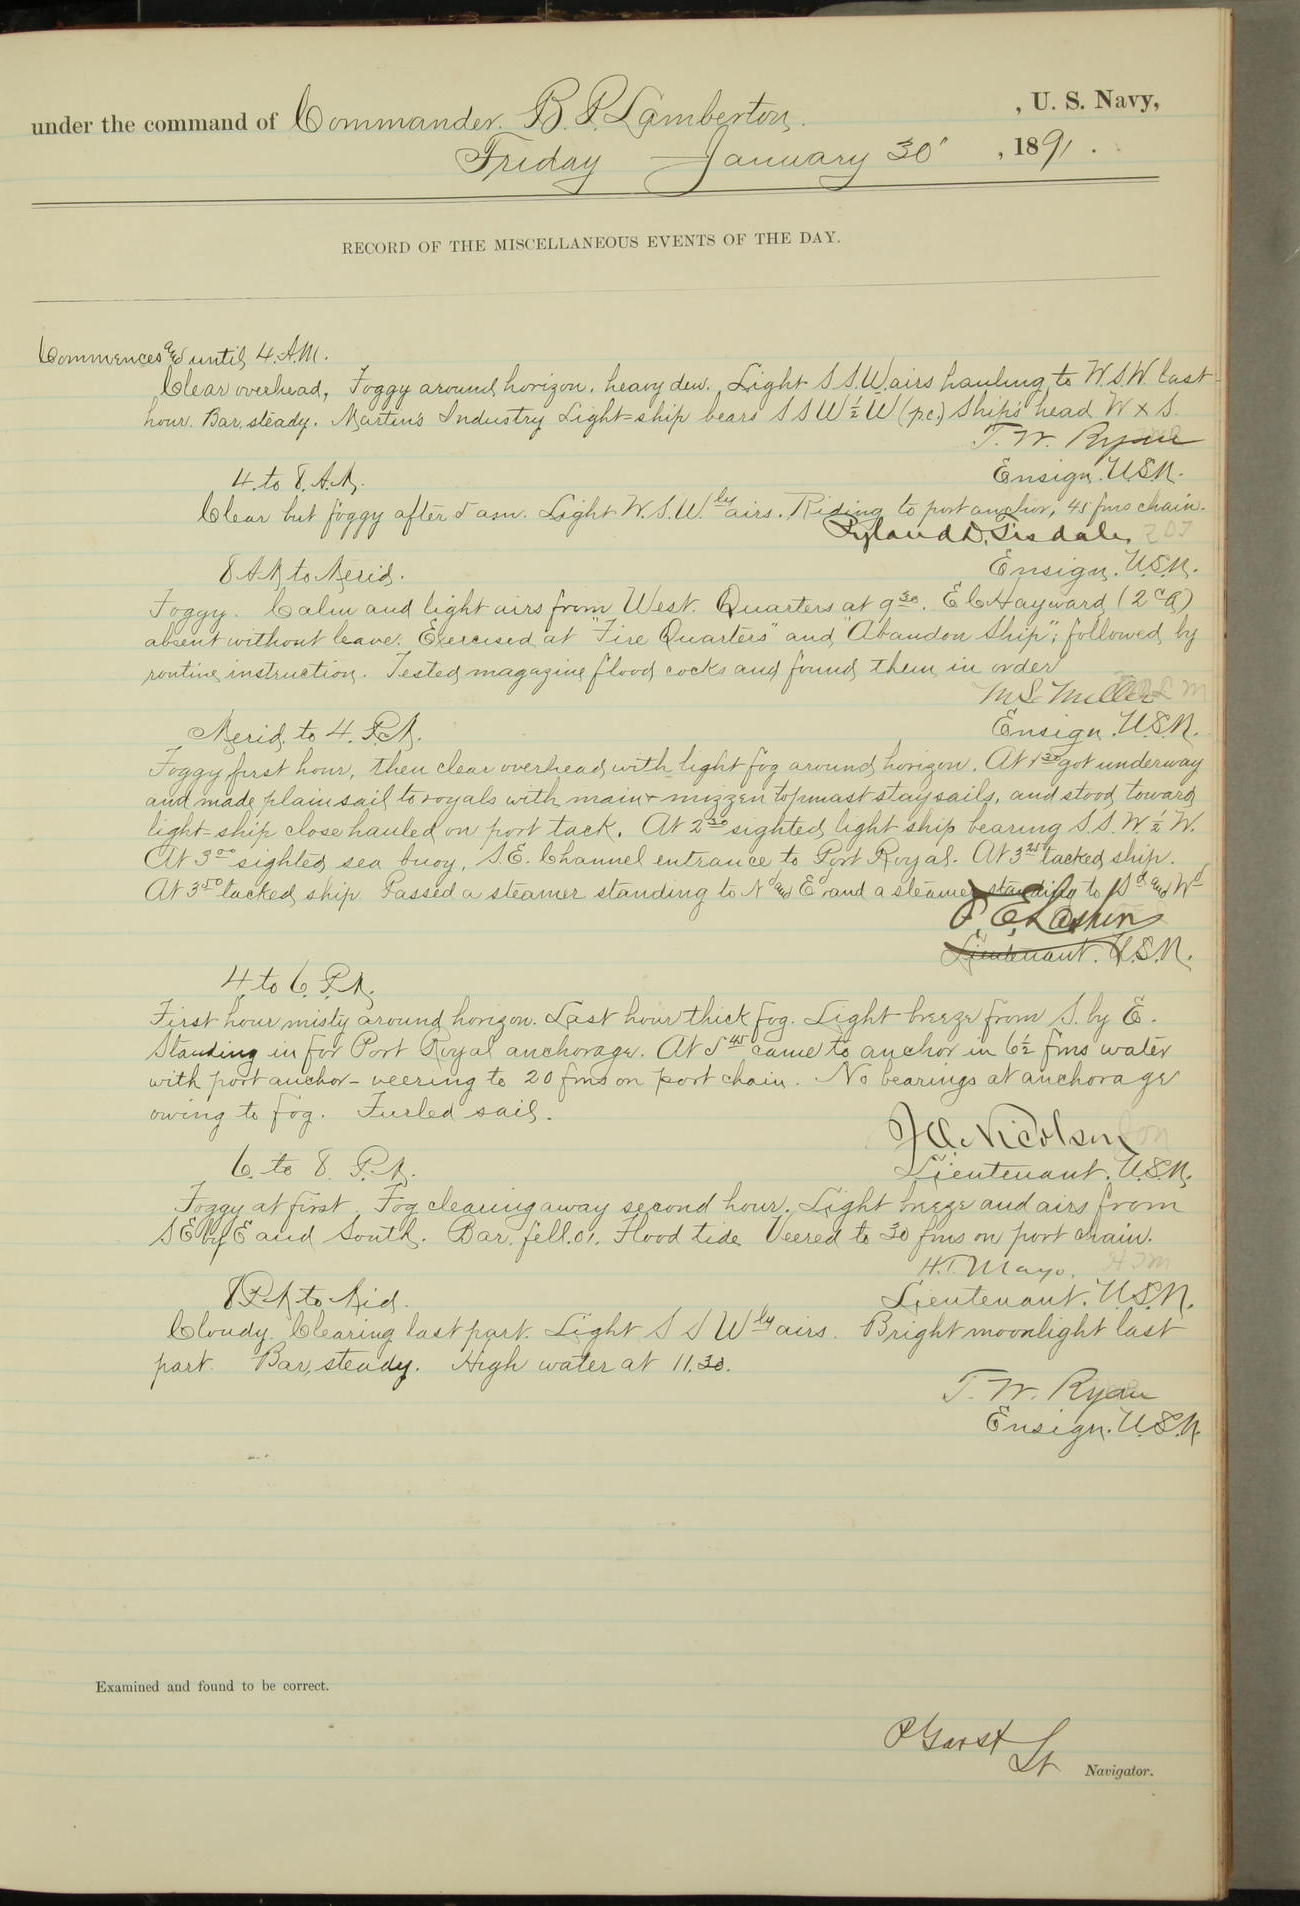 under the command of Commander B. P. Lamberton, U. S. Navy,
Friday January 30', 1891.
RECORD OF THE MISCELLANEOUS EVENTS OF THE DAY.
Commences and until 4. A.M.
Clear overhead, Foggy around horizon. heavy dew. Light S.S.W. airs hauling to W.S.W. last
hour. Bar. steady. Martin's Industry Light=ship bears S S W ½ W (p.c.) Ship's head W x S.
T. W. Ryan
Ensign. U.S.N.
4. to 8. A.M.
Clear but foggy after 5 a.m. Light W.S.W.ly airs. Riding to port anchor, 45 fms chain.
Ryland D. Tisdale RDT
Ensign. U.S.N.
8 A.M. to Merid.
Foggy. Calm and light airs from West. Quarters at 9 30. E C Hayward (2 c a)
absent without leave. Exercised at "Fire Quarters" and "Abandon Ship"; followed by
routine instruction. Tested magazine flood cocks and found them in order
M L Miller
Ensign. U.S.N.
Merid. to 4. P.M.
Foggy first hour, then clear overhead with light fog around horizon. At 1 30 got underway
and made plain sail to royals with main & mizzen topmast staysails, and stood toward
light=ship close hauled on port tack. At 2 30 sighted light ship bearing S.S.W. ½ W.
At 3 00 sighted sea buoy, S.E. Channel entrance to Port Royal. At 3 25 tacked ship.
At 3 50 tacked ship. Passed a steamer standing to Nd and Ed and a steamer standing to Sd and Wd
Lieutenant. U.S.N.
4 to 6 P.M.
First hour misty around horizon. Last hour thick fog. Light breeze from S. by E.
Standing in for Port Royal anchorage. At 5 45 came to anchor in 6½ fms water
with port anchor - veering to 20 fms on port chain. No bearings at anchorage
owing to fog. Furled sail.
J.O. Nicolson
Lieutenant. U.S.N.
6. to 8. P.M.
Foggy at first. Fog clearing away second hour. Light breeze and airs from
SE by E and South. Bar. fell .01. Flood tide Veered to 30 fms on port chain.
H.T. Mayo. HTM
Lieutenant. U.S.N.
8 P.M. to Mid.
Cloudy. Clearing last part. Light S S W ly airs. Bright moonlight last
part. Bar. steady. High water at 11.30.
T. W. Ryan
Ensign. U.S.N.
Examined and found to be correct.
P Garst
Lt Navigator.